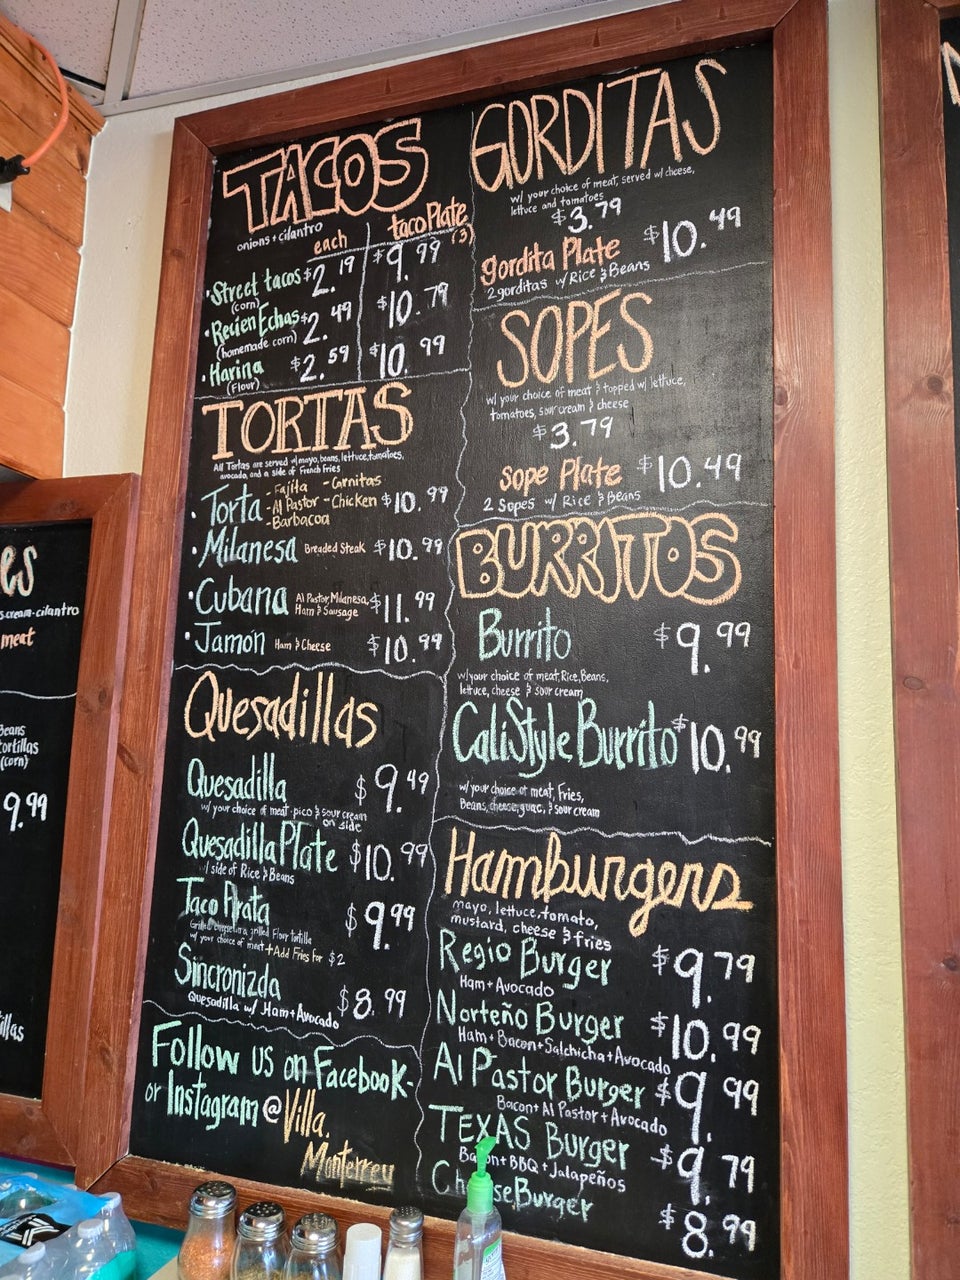 TACOS
onions + cilantro
each
taco Plate (3)
• Street tacos $2.19 $9.99
(corn)
• Recien Echas $2.49 $10.79
(homemade corn)
• Harina $2.59 $10.99
(Flour)
TORTAS
All Tortas are served w/mayo, beans, lettuce, tomatoes,
avocado, and a side of French Fries
• Torta - Fajita - Carnitas
- Al Pastor - Chicken $10.99
- Barbacoa
• Milanesa Breaded Steak $10.99
• Cubana Al Pastor, Milanesa, $11.99
Ham & Sausage
• Jamón Ham & Cheese $10.99
Quesadillas
Quesadilla $9.49
w/your choice of meat • pico & sour cream
on side
Quesadilla Plate $10.99
w/ side of Rice & Beans
Taco Pirata $9.99
grilled Flour tortilla
w/ your choice of meat + Add Fries for $2
Sincronizda $8.99
Quesadilla w/ Ham + Avocado
Follow us on Facebook-
or Instagram @ Villa.
Monterrey
GORDITAS
w/ your choice of meat, served w/ cheese,
lettuce and tomatoes
$3.79
gordita Plate $10.49
2 gorditas w/ Rice & Beans
SOPES
w/ your choice of meat & topped w/ lettuce,
tomatoes, sour cream & cheese
$3.79
sope Plate $10.49
2 Sopes w/ Rice & Beans
BURRITOS
Burrito $9.99
w/your choice of meat, Rice, Beans,
lettuce, cheese & sour cream
Cali Style Burrito $10.99
w/your choice of meat, Fries,
Beans, cheese, guac, & sour cream
Hamburgers
mayo, lettuce, tomato,
mustard, cheese & fries
Regio Burger $9.79
Ham + Avocado
Norteño Burger $10.99
Ham + Bacon + Salchicha + Avocado
Al Pastor Burger $9.99
Bacon + Al Pastor + Avocado
TEXAS Burger $9.79
Bacon + BBQ + Jalapeños
Cheese Burger $8.99
es
s. cream - cilantro
meat
Beans
tortillas
(corn)
9.99
illas